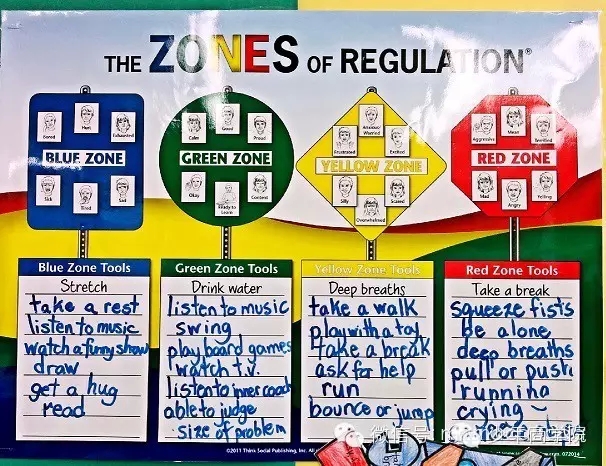 THE ZONES OF REGULATION®
Bored
Hurt
Exhausted
BLUE ZONE
Sick
Tired
Sad
Calm
Good
Proud
GREEN ZONE
Okay
Ready to
Learn
Content
Frustrated
Anxious/
Worried
Excited
YELLOW ZONE
Silly
Overwhelmed
Scared
Aggressive
Mean
Terrified
RED ZONE
Mad
Angry
Yelling
Blue Zone Tools
Stretch
take a rest
listen to music
watch a funny show
draw
get a hug
read
Green Zone Tools
Drink water
listen to music
swing
play board games
watch t.v.
listen to inner coach
able to judge
size of problem
Yellow Zone Tools
Deep breaths
take a walk
play with a toy
take a break
ask for help
run
bounce or jump
Red Zone Tools
Take a break
squeeze fists
be alone
deep breaths
pull or push
running
crying
©2011 Think Social Publishing, Inc. All
072014
微信号
商学院